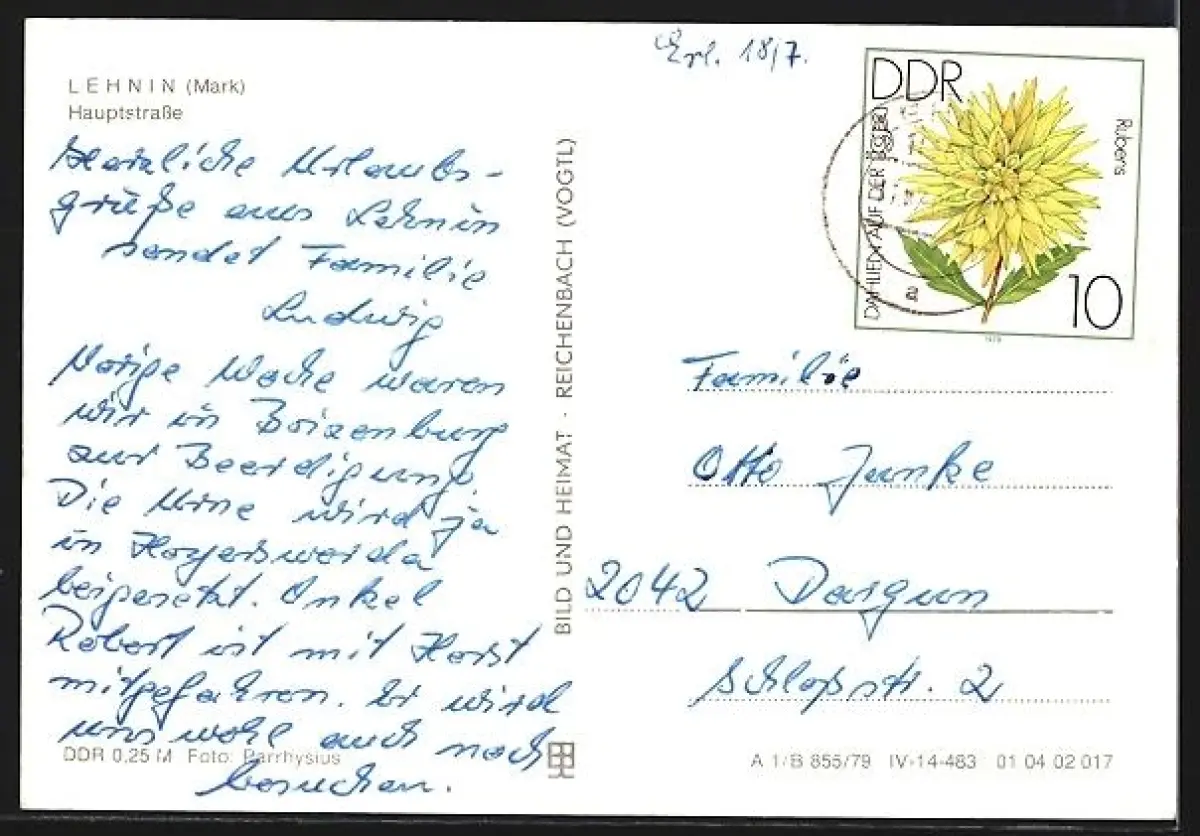 LEHNIN (Mark)
Hauptstraße
Herzliche Urlaubs-
grüße aus Lehnin
sendet Familie
Ludwig
Vorige Woche waren
wir in Boizenburg
zur Beerdigung.
Die Urne wird ja
in Hoyerswerda
beigesetzt. Onkel
Robert ist mit Horst
mitgefahren. Er wird
uns wohl auch noch
besuchen.
DDR 0,25 M Foto: Parrhysius
BILD UND HEIMAT · REICHENBACH (VOGTL)
Erl. 18/7.
DDR
DAHLIEN AUF DER
Rubens
10
1979
a
Familie
Otto Junke
2042 Dargun
Schloßstr. 2
A 1/B 855/79 IV-14-483 01 04 02 017